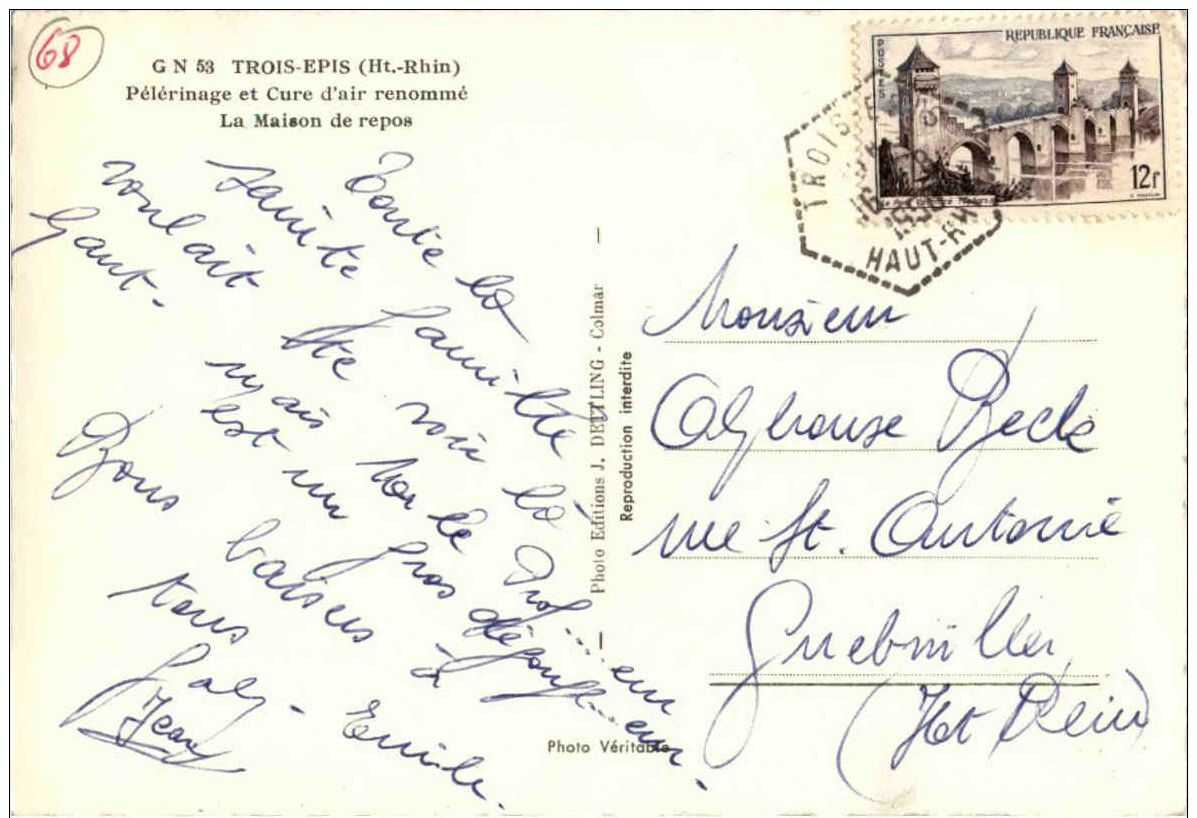 68
G N 53 TROIS-EPIS (Ht.-Rhin)
Pélérinage et Cure d'air renommé
La Maison de repos
Toute la
sainte famille
voulait te voir là
haut. mais le Prof.....eur
est un gros dégonfl...eur.
Bons baisers à
tous
Gaby - Emile.
Jean
Photo Editions J. DETTLING - Colmar
Reproduction interdite
Photo Véritable
REPUBLIQUE FRANÇAISE
POSTES
12f
TROIS-E
HAUT-RH
Monsieur
Alphonse Beck
rue St. Antoine
Guebwiller
(Ht Rhin)